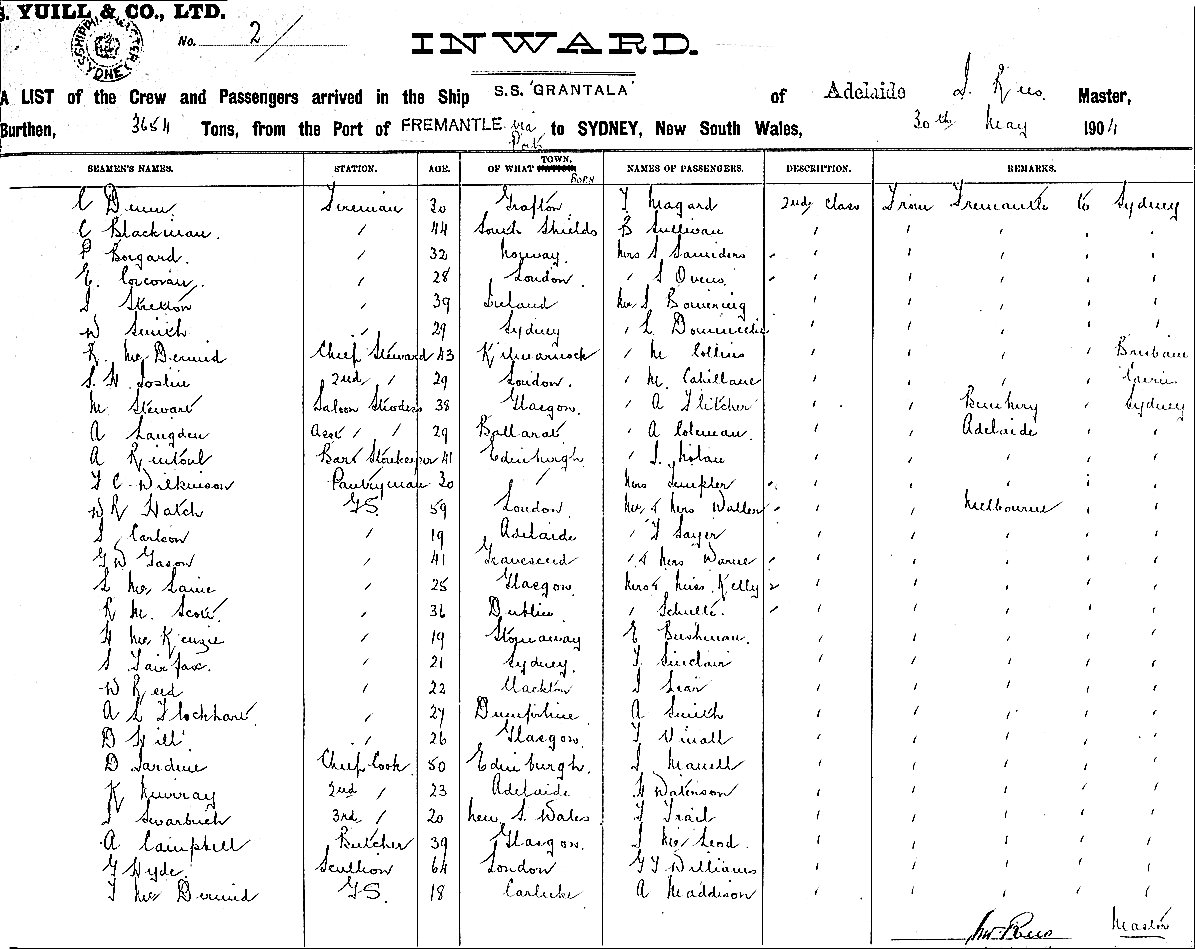 S. YUILL & CO., LTD.
SHIPPING MASTER SYDNEY
No. 2
INWARD.
A LIST of the Crew and Passengers arrived in the Ship S.S. 'GRANTALA' of Adelaide J. Rees. Master,
Burthen, 3654 Tons, from the Port of FREMANTLE via Ports to SYDNEY, New South Wales, 30th May 1904
SEAMEN'S NAMES. STATION. AGE. OF WHAT TOWN. Born NAMES OF PASSENGERS. DESCRIPTION. REMARKS.
C Fireman 30 Grafton T Hagard 2nd Class From Fremantle to Sydney
C Blackman. " 44 South Shields B Sullivan " " " " "
P Borgard. " 32 Norway. Mrs S Saunders " " " " "
E. Corcoran. " 28 London " S Ovens " " " " "
J Stretton " 39 Ireland Mr J Bowering " " " " "
W Smith " 29 Sydney " L " " " " "
R. McDermid Chief Steward 43 Kilmarnock " M Collins " " " " Brisbane
2nd " 29 London. " M. Cahillane " " " "
M. Stewart Saloon 38 Glasgow. " A Flitcher " " Bunbury " Sydney
A Langden Asst " " 29 Ballarat " A Coleman. " " Adelaide " "
A Rintoul Storekeeper 41 Edinburgh J. Nolan " " " " "
T C Wilkinson Pantryman 30 " Mrs Templer " " " " "
W R Hatch G.S. 59 London. Mr & Mrs Walter " " Melbourne " "
J Carlson " 19 Adelaide " T Sayer " " " " "
G W Gason " 41 Gravesend " & Mrs " " " " "
L McLaine " 25 Glasgow. Mrs & Miss Kelly " " " " "
R M. Scott " 36 Dublin " Schulte. " " " " "
H McKenzie " 19 Stowaway E Bushman. " " " " "
S Fairfax. " 21 Sydney. T. Sinclair " " " " "
W Reid " 22 J Lean " " " " "
A L Flockhart " 27 A Smith " " " " "
D Hill " 26 Glasgow. T Vinall " " " " "
D Jardine Chief Cook 50 Edinburgh. J " " " " "
K Murray 2nd " 23 Adelaide H Watenson " " " " "
J Swarbrick 3rd " 20 New S. Wales T Trail " " " " "
A Campbell Butcher 39 Glasgow. J McLeod " " " " "
G Hyde. Scullion 64 London G T Williams " " " " "
T McDermid G.S. 18 Carluke A Maddison " " " " "
Rees Master